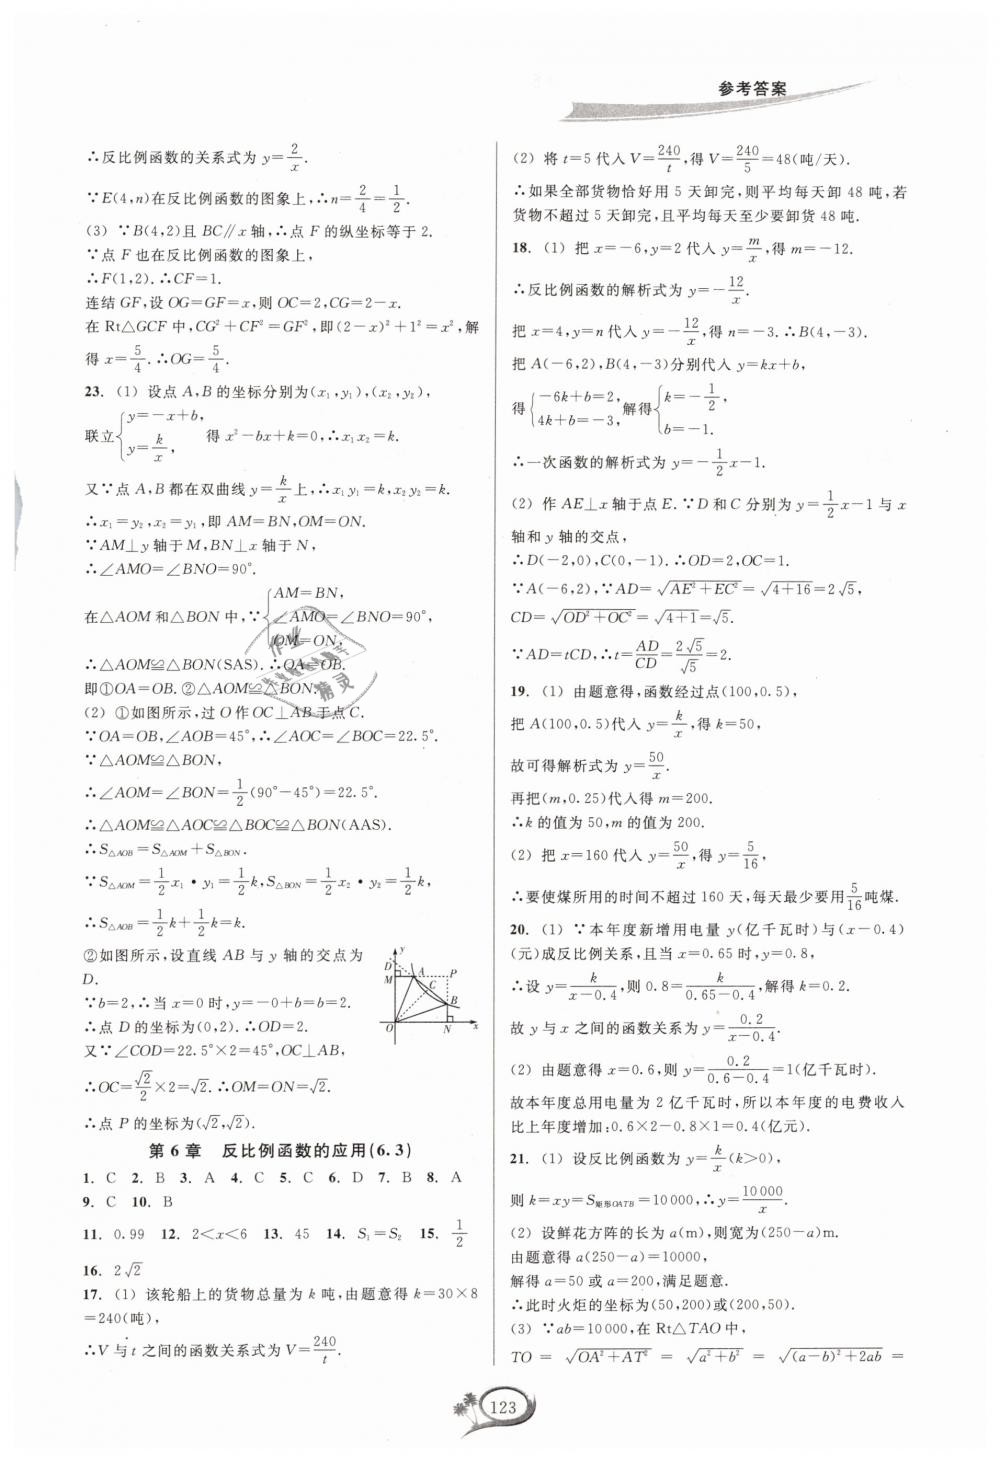 参考答案
∴反比例函数的关系式为 y=2/x.
∵E(4,n)在反比例函数的图象上,∴n=2/4=1/2.
(3) ∵B(4,2)且 BC∥x 轴,∴点 F 的纵坐标等于 2.
∵点 F 也在反比例函数的图象上,
∴F(1,2).∴CF=1.
连结 GF,设 OG=GF=x,则 OC=2,CG=2-x.
在 Rt△GCF 中,CG²+CF²=GF²,即(2-x)²+1²=x²,解
得 x=5/4.∴OG=5/4.
23. (1) 设点 A,B 的坐标分别为(x₁,y₁),(x₂,y₂),
联立{y=-x+b, y=k/x, 得 x²-bx+k=0,∴x₁x₂=k.
又∵点 A,B 都在双曲线 y=k/x 上,∴x₁y₁=k,x₂y₂=k.
∴x₁=y₂,x₂=y₁,即 AM=BN,OM=ON.
∵AM⊥y 轴于 M,BN⊥x 轴于 N,
∴∠AMO=∠BNO=90°.
在△AOM 和△BON 中,∵{AM=BN, ∠AMO=∠BNO=90°, OM=ON,
∴△AOM≌△BON(SAS).∴OA=OB.
即①OA=OB.②△AOM≌△BON.
(2) ①如图所示,过 O 作 OC⊥AB 于点 C.
∵OA=OB,∠AOB=45°,∴∠AOC=∠BOC=22.5°.
∵△AOM≌△BON,
∴∠AOM=∠BON=1/2(90°-45°)=22.5°.
∴△AOM≌△AOC≌△BOC≌△BON(AAS).
∴S△AOB=S△AOM+S△BON.
∵S△AOM=1/2x₁•y₁=1/2k,S△BON=1/2x₂•y₂=1/2k,
∴S△AOB=1/2k+1/2k=k.
②如图所示,设直线 AB 与 y 轴的交点为
D.
∵b=2,∴当 x=0 时,y=-0+b=b=2.
∴点 D 的坐标为(0,2).∴OD=2.
又∵∠COD=22.5°×2=45°,OC⊥AB,
∴OC=√2/2×2=√2.∴OM=ON=√2.
∴点 P 的坐标为(√2,√2).
y
D
M A P
C
B
O N x
第 6 章 反比例函数的应用(6.3)
1. C 2. B 3. A 4. C 5. C 6. D 7. B 8. A
9. C 10. B
11. 0.99 12. 2<x<6 13. 45 14. S₁=S₂ 15. 1/2
16. 2√2
17. (1) 该轮船上的货物总量为 k 吨,由题意得 k=30×8
=240(吨),
∴V 与 t 之间的函数关系式为 V=240/t.
(2) 将 t=5 代入 V=240/t,得 V=240/5=48(吨/天).
∴如果全部货物恰好用 5 天卸完,则平均每天卸 48 吨,若
货物不超过 5 天卸完,且平均每天至少要卸货 48 吨.
18. (1) 把 x=-6,y=2 代入 y=m/x,得 m=-12.
∴反比例函数的解析式为 y=-12/x.
把 x=4,y=n 代入 y=-12/x,得 n=-3.∴B(4,-3).
把 A(-6,2),B(4,-3)分别代入 y=kx+b,
得{-6k+b=2, 4k+b=-3, 解得{k=-1/2, b=-1.
∴一次函数的解析式为 y=-1/2x-1.
(2) 作 AE⊥x 轴于点 E.∵D 和 C 分别为 y=1/2x-1 与 x
轴和 y 轴的交点,
∴D(-2,0),C(0,-1).∴OD=2,OC=1.
∵A(-6,2),∵AD=√(AE²+EC²)=√(4+16)=2√5,
CD=√(OD²+OC²)=√(4+1)=√5.
∵AD=tCD,∴t=AD/CD=2√5/√5=2.
19. (1) 由题意得,函数经过点(100,0.5),
把 A(100,0.5)代入 y=k/x,得 k=50,
故可得解析式为 y=50/x.
再把(m,0.25)代入得 m=200.
∴k 的值为 50,m 的值为 200.
(2) 把 x=160 代入 y=50/x,得 y=5/16,
∴要使煤所用的时间不超过 160 天,每天最少要用5/16吨煤.
20. (1) ∵本年度新增用电量 y(亿千瓦时)与(x-0.4)
(元)成反比例关系,且当 x=0.65 时,y=0.8,
∴设 y=k/(x-0.4),则 0.8=k/(0.65-0.4),解得 k=0.2.
故 y 与 x 之间的函数关系为 y=0.2/(x-0.4).
(2) 由题意得 x=0.6,则 y=0.2/(0.6-0.4)=1(亿千瓦时).
故本年度总用电量为 2 亿千瓦时,所以本年度的电费收入
比上年度增加:0.6×2-0.8×1=0.4(亿元).
21. (1) 设反比例函数为 y=k/x(k>0),
则 k=xy=S矩形OATB=10000,∴y=10000/x.
(2) 设鲜花方阵的长为 a(m),则宽为(250-a)m.
由题意得 a(250-a)=10000,
解得 a=50 或 a=200,满足题意.
∴此时火炬的坐标为(50,200)或(200,50).
(3) ∵ab=10000,在 Rt△TAO 中,
TO = √(OA²+AT²) = √(a²+b²) = √((a-b)²+2ab) =
123